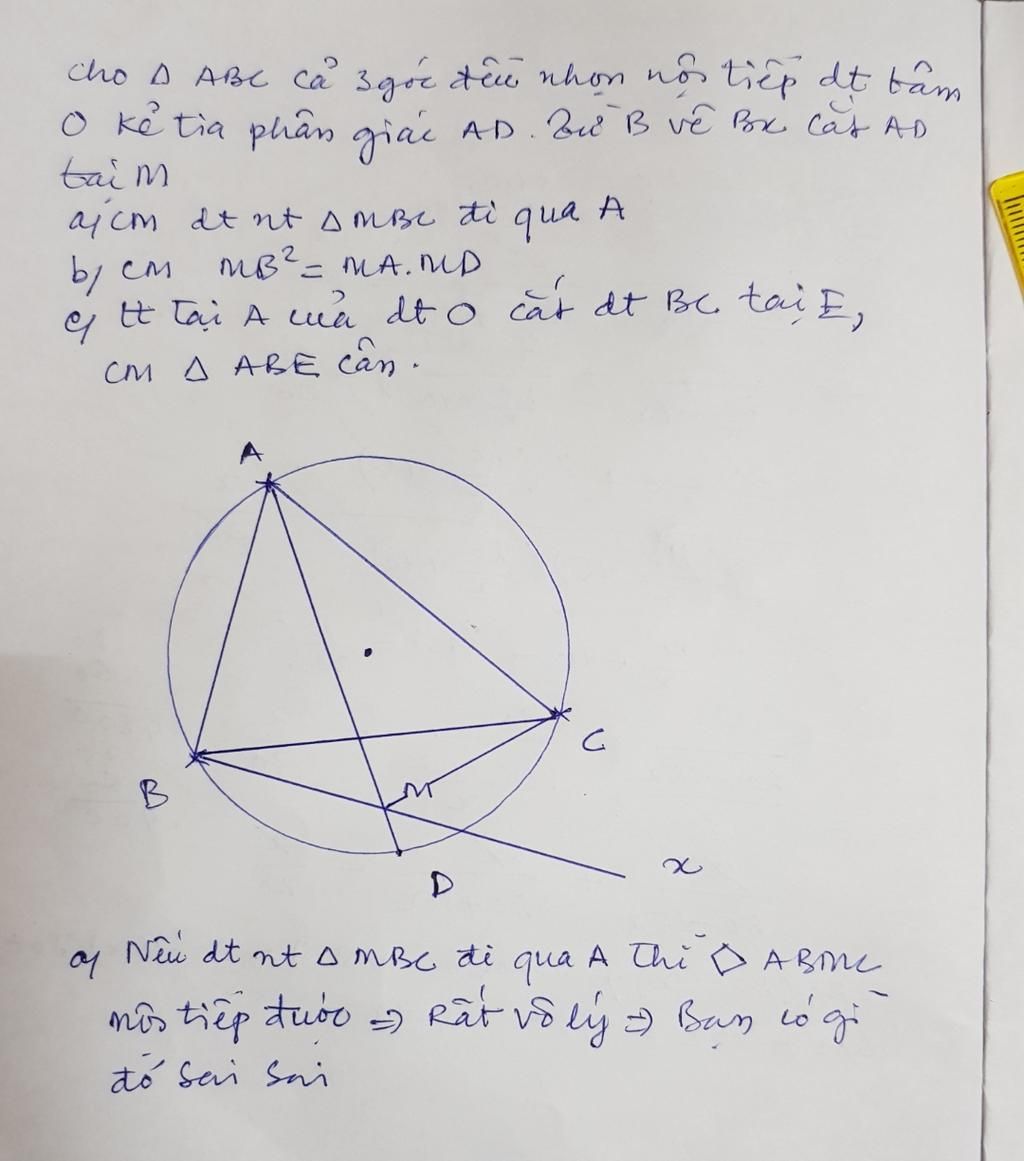 Cho △ ABC cả 3 góc đều nhọn nội tiếp đt tâm
O kẻ tia phân giác AD. Từ B vẽ Bx cắt AD
tại M
a, CM đt nt △ MBC đi qua A
b, CM MB² = MA.MD
c, tt tại A của đt O cắt đt BC tại E,
CM △ ABE cân.
A
B
C
M
D
x
a, Nếu đt nt △ MBC đi qua A thì ◇ ABMC
nội tiếp được ⇒ Rất vô lý ⇒ Bạn có gì
đó sai sai